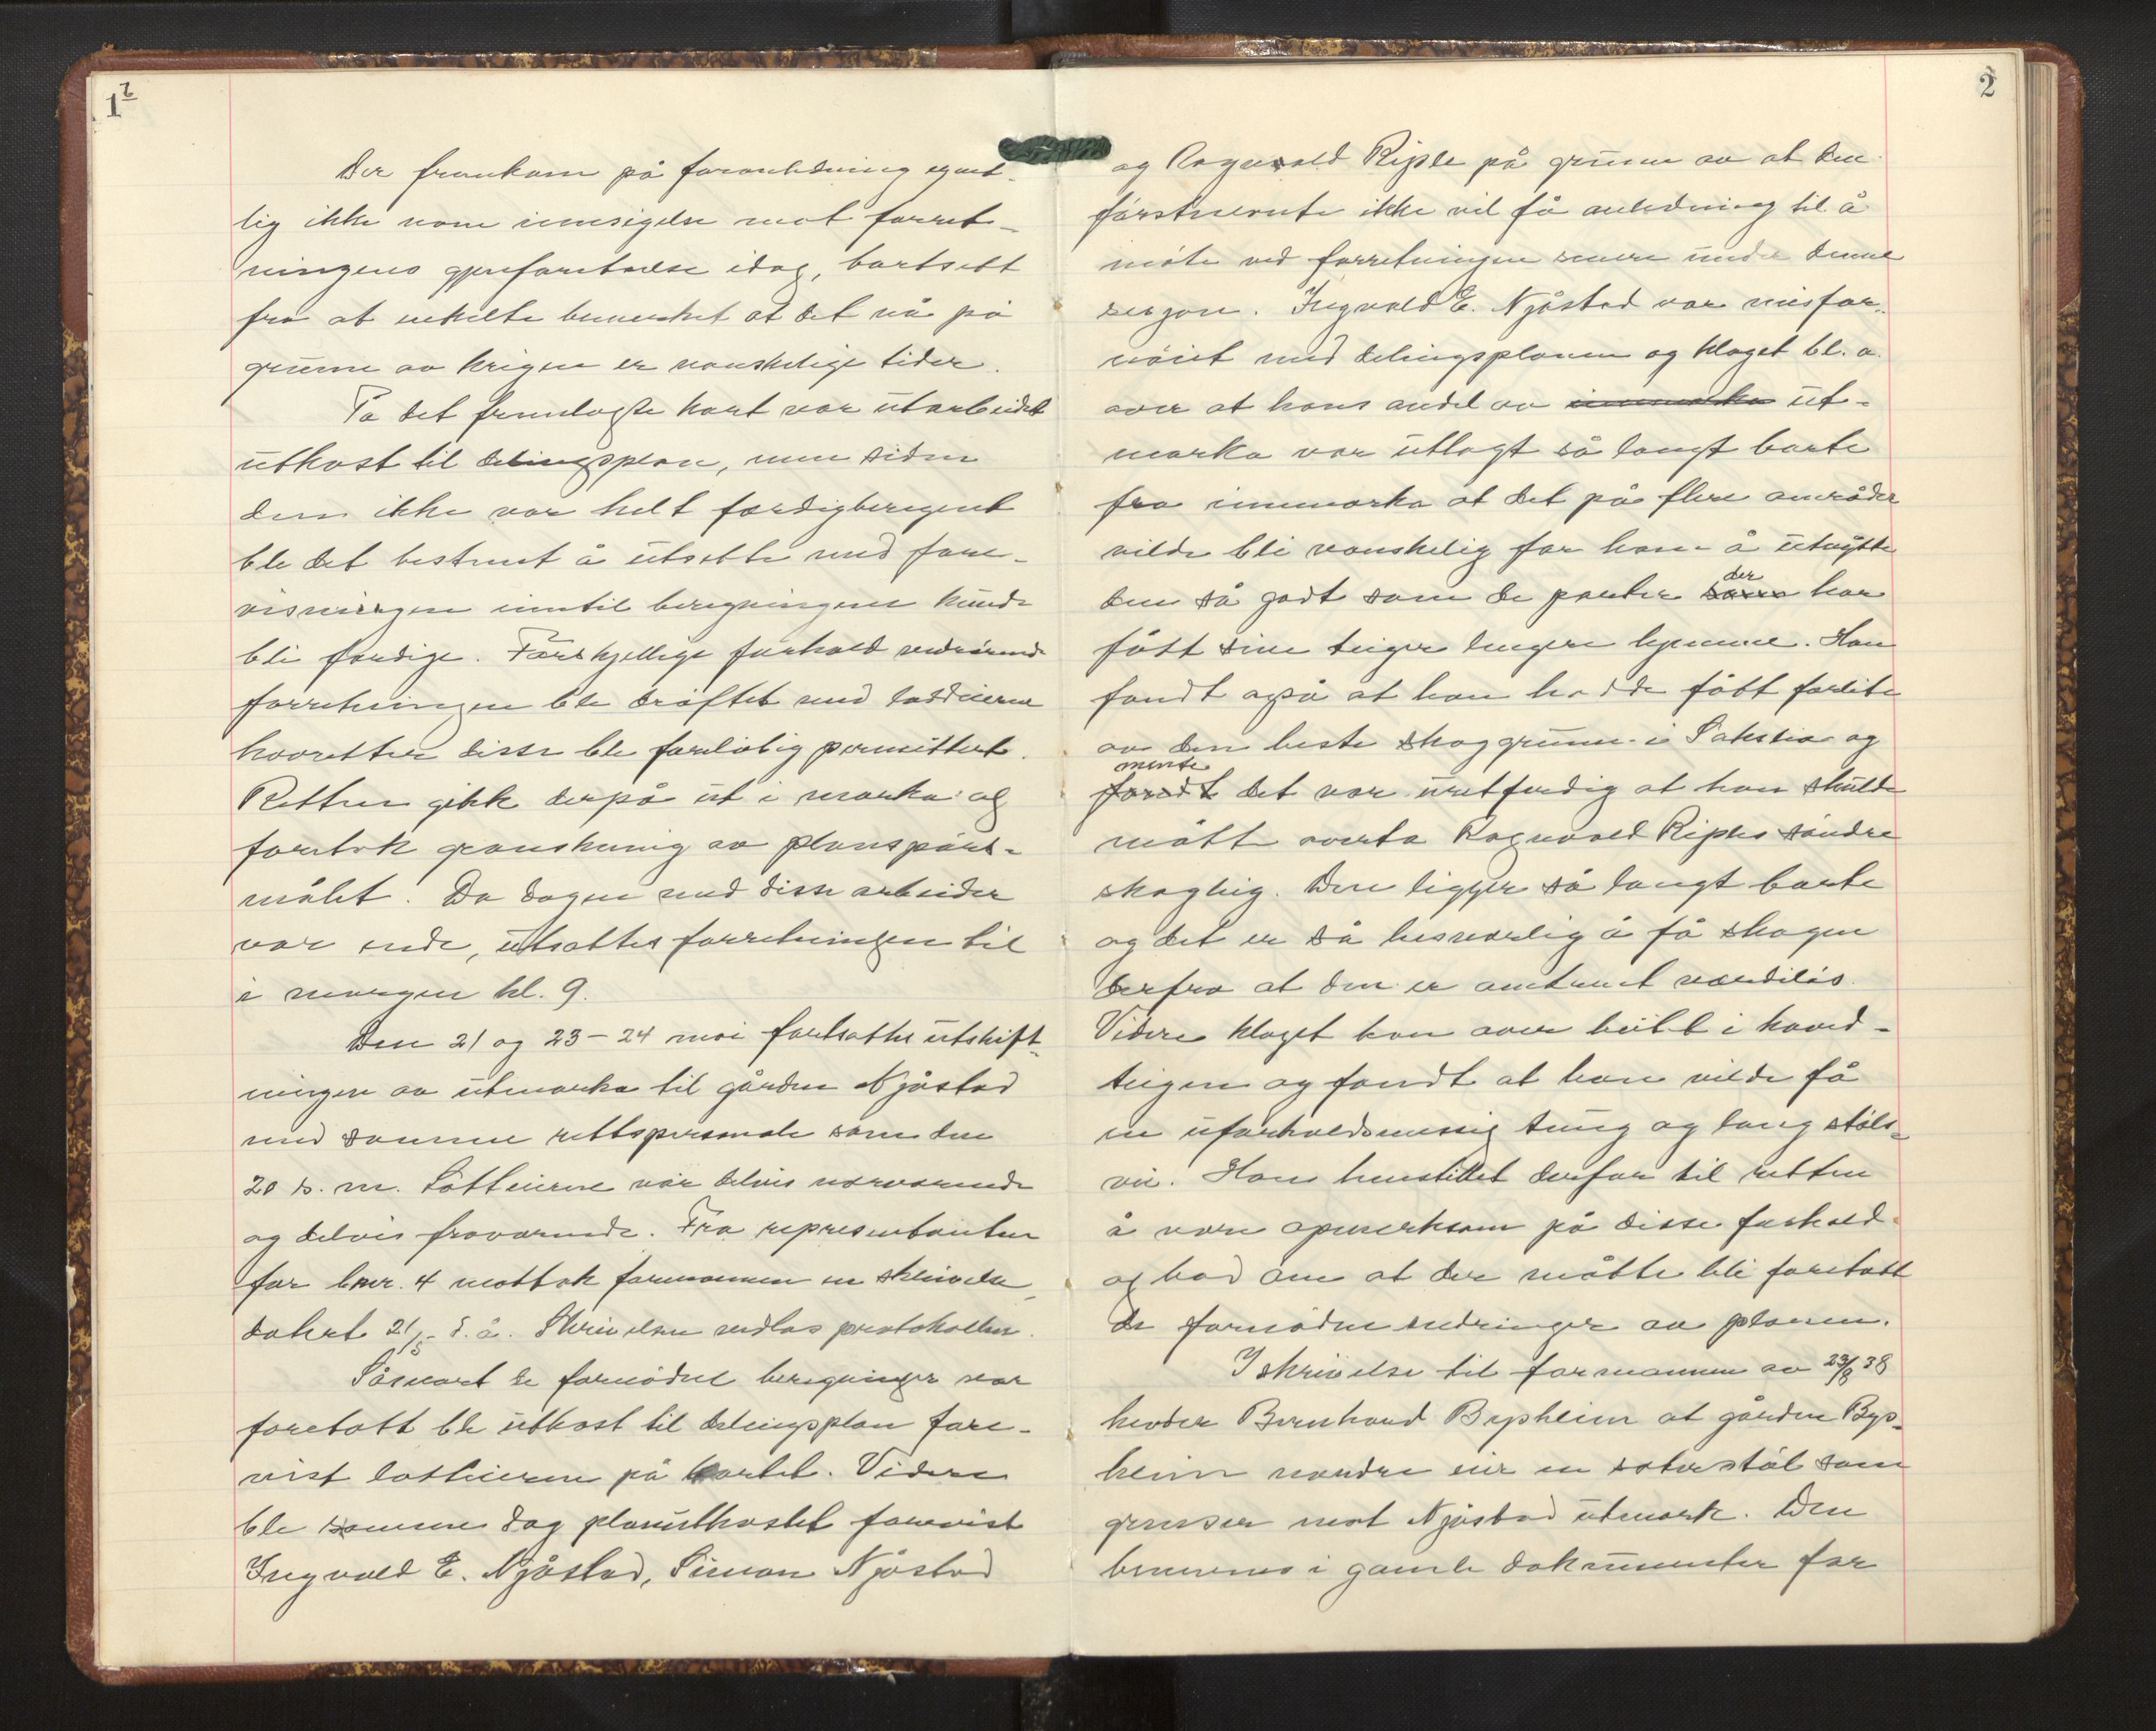 1b
Der fremkom på foranledning egent-
lig ikke noen innsigelse mot forret-
ningens gjenforetaelse idag, bortsett
fra at enkelte bemerket at det nå på
grunn av krigen er vanskelige tider.
På det fremlagte kart var utarbeidet
utkast til delingsplan, men siden
den ikke var helt ferdigberegnet
ble det bestemt å utsette med fore-
visningen inntil beregningene kunde
bli ferdige. Forskjellige forhold vedrørende
forretningen ble drøftet med loddeierne
hvoretter disse ble foreløbig permittert.
Retten gikk derpå ut i marka og
foretok granskning av planspørs-
målet. Da dagen med disse arbeider
var ende, utsattes forretningen til
i morgen kl. 9.
Den 21 og 23-24 mai fortsattes utskift-
ningen av utmarka til gården Njåstad
med samme rettspersonale som den
20 s. m. Lotteierne var delvis nærværende
og delvis fraværende. Fra representanten
for bnr. 4 mottok formannen en skrivelse
datert 21/5 d. å. Skrivelsen vedlas protokollen.
Såsnart de fornødne beregninger var
foretatt ble utkast til delingsplan fore-
vist lotteierne på kartet. Videre
ble samme dag planutkastet forevist
Ingvald E. Njåstad, Simon Njåstad
2
og Ragnvald Riple på grunn av at den
førstnevnte ikke vil få anledning til å
møte ved forretningen senere under denne
sesjon. Ingvald E. Njåstad var misfor-
nøiet med delingsplanen og klaget bl. a.
over at hans andel av innmarka ut-
marka var utlagt så langt borte
fra innmarka at det på flere områder
vilde bli vanskelig for ham å utnytte
den så godt som de parter som der har
fått sine teiger lengere hjemme. Han
fandt også at han hadde fått forlite
av den beste skoggrunn i Sakslia og
fandt mente det var uretferdig at han skulde
måtte overta Ragnvald Riples søndre
skogteig. Den ligger så langt borte
og det er så besværlig å få skogen
derfra at den er omtrent verdiløs.
Videre klaget han over beitet i hoved-
teigen og fandt at han vilde få
en uforholdsmessig tung og lang støls-
vei. Han henstillet derfor til retten
å være opmerksom på disse forhold
og bad om at der måtte bli foretatt
de fornødne endringer av planen.
I skrivelse til formannen av 23/8 38
hevder Bernhard Bysheim at gården Bys-
heim nordre eier en seterstøl som
grenser mot Njåstad utmark. Den
benevnes i gamle dokumenter for